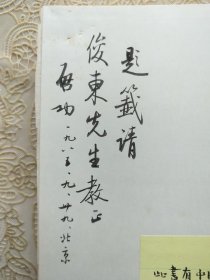 題籤请
俊東先生教正
啓功 一九八五.九.廿九.北京
此書有中